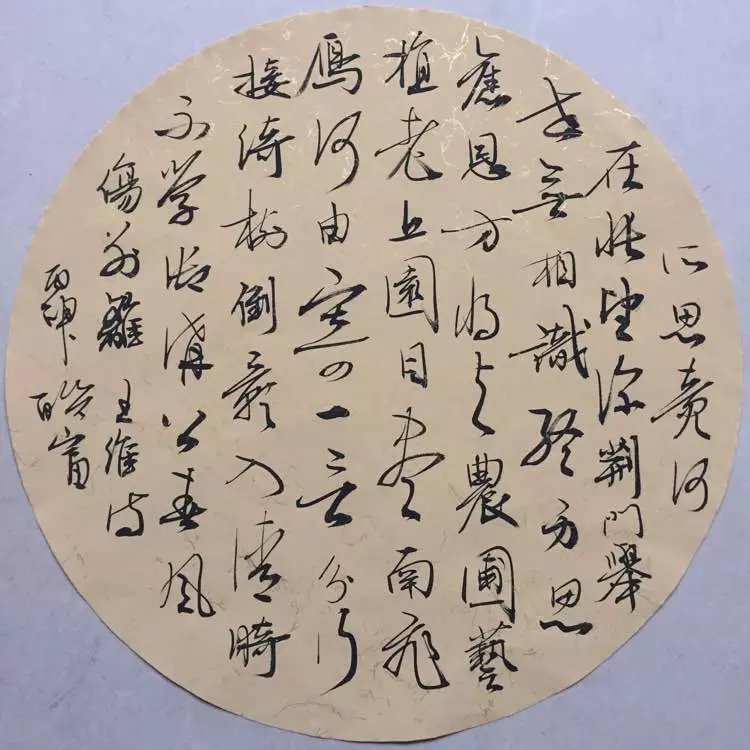 所思竟何
在悵望深荆門舉
世無相識終身思
舊恩方將與農圃藝
植老丘園目盡南飛
鴈何由寄一言分行
接綺樹倒影入清漪
不學御溝上春風
傷別離 王維詩
丙申